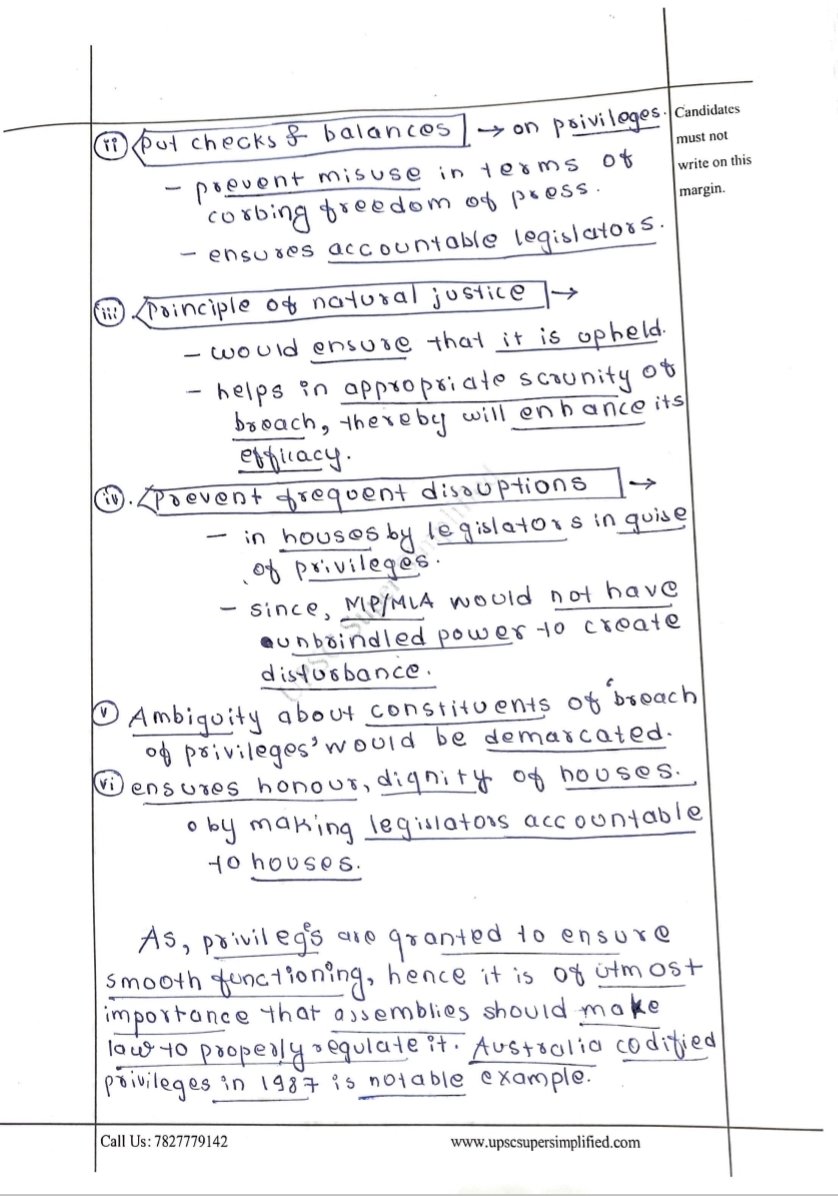 (ii) Put checks & balances → on privileges.
- prevent misuse in terms of
corbing freedom of press.
- ensures accountable legislators.
(iii) Principle of natural justice →
- would ensure that it is upheld.
- helps in appropriate scrunity of
breach, thereby will enhance its
efficacy.
(iv). Prevent frequent disruptions →
- in houses by legislators in guise
of privileges.
- since, MP/MLA would not have
unbrindled power to create
disturbance.
(v) Ambiguity about constituents of 'breach
of privileges' would be demarcated.
(vi) ensures honour, dignity of houses.
o by making legislators accountable
to houses.
As, privileges are granted to ensure
smooth functioning, hence it is of utmost
importance that assemblies should make
law to properly regulate it. Australia codified
privileges in 1987 is notable example.
Candidates
must not
write on this
margin.
Call Us: 7827779142 www.upscsupersimplified.com